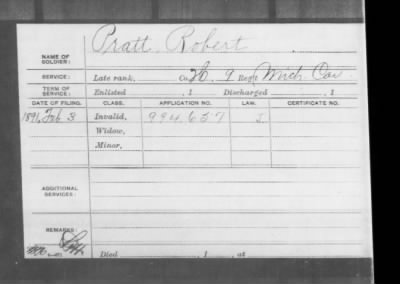 NAME OF SOLDIER: Pratt, Robert
SERVICE: Late rank, Co. H, 9 Reg't Mich Cav
TERM OF SERVICE: Enlisted , 1 Discharged , 1
DATE OF FILING. CLASS. APPLICATION NO. LAW. CERTIFICATE NO.
1891, Feb 3 Invalid, 994657 J.
Widow,
Minor,
ADDITIONAL SERVICES:
REMARKS:
Died , 1 , at